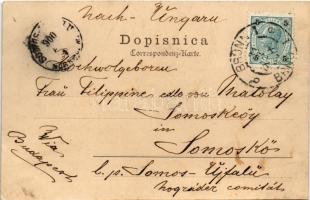 Nach - Ungarn
Dopisnica
Correspondenz-Karte.
Hochwolgeboren
Frau Filippine edle von Matolay
Somoskeöy
in
Somoskő
l.p. Somos-Újfalú
nograder comität
Via
Budapest
900
BRÜNN
5
5